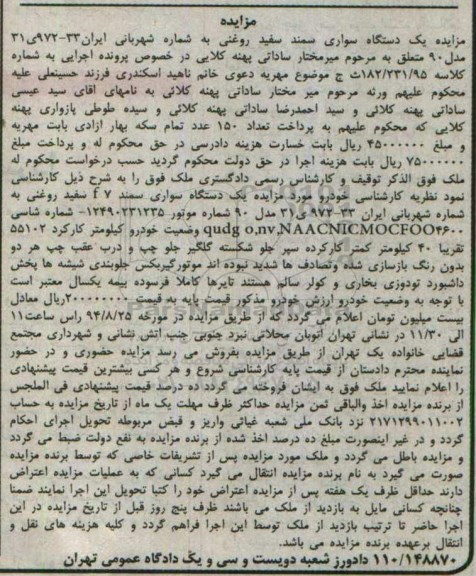 مزایده
مزایده یک دستگاه سواری سمند سفید روغنی به شماره شهربانی ایران۳۳-۹۷۲ی۳۱
مدل۹۰ متعلق به مرحوم میرمختار ساداتی پهنه کلایی در خصوص پرونده اجرایی به شماره
کلاسه ۱۸۲/۲۳۱/۹۵ط ج موضوع مهریه دعوی خانم ناهید اسکندری فرزند حسینعلی علیه
محکوم علیهم ورثه مرحوم میر مختار ساداتی پهنه کلائی به نامهای اقای سید عیسی
ساداتی پهنه کلائی و سید احمدرضا ساداتی پهنه کلائی و سیده طوطی پازواری پهنه
کلایی که محکوم علیهم به پرداخت تعداد ۱۵۰ عدد تمام سکه بهار ازادی بابت مهریه
و مبلغ ۴۵۰۰۰۰۰۰ ریال بابت خسارت هزینه دادرسی در حق محکوم له و پرداخت مبلغ
۷۵۰۰۰۰۰۰ ریال بابت هزینه اجرا در حق دولت محکوم گردید حسب درخواست محکوم له
ملک فوق الذکر توقیف و کارشناس رسمی دادگستری ملک فوق را به شرح ذیل کارشناسی
نمود نظریه کارشناسی خودرو مورد مزایده یک دستگاه سواری سمند f ۷ سفید روغنی به
شماره شهربانی ایران ۳۳-۹۷۲ ی۳۱ مدل ۹۰ شماره موتور ۱۲۴۹۰۲۳۱۲۳۵- شماره شاسی
qudg o,nv,NAACNICMOCFOO۴۶۰۰ وضعیت خودرو کیلومتر کارکرد ۵۵۱۰۲
تقریبا ۴۰ کیلومتر کمتر کارکرده سپر جلو شکسته گلگیر جلو چپ و درب عقب چپ هر دو
بدون رنگ بازسازی شده وتصادف ها شدید نبوده اند موتورگیربکس جلوبندی شیشه ها پخش
داشبورد تودوزی بخاری و کولر سالم هستند تایرها کاملا فرسوده بیمه یکسال معتبر است
با توجه به وضعیت خودرو ارزش خودرو مذکور قیمت پایه به قیمت ۲۰۰۰۰۰۰۰۰ریال معادل
بیست میلیون تومان اعلام می گردد که از طریق مزایده در مورخه ۹۴/۸/۲۵ راس ساعت۱۱
الی ۱۱/۳۰ در نشانی تهران اتوبان محلاتی نبرد جنوبی جنب اتش نشانی و شهرداری مجتمع
قضایی خانواده یک تهران از طریق مزایده بفروش می رسد مزایده حضوری و در حضور
نماینده محترم دادستان از قیمت پایه کارشناسی شروع و هر کسی بیشترین قیمت پیشنهادی
را اعلام نمایید ملک فوق به ایشان فروخته می گردد ده درصد قیمت پیشنهادی فی المجلس
از برنده مزایده اخذ والباقی ثمن مزایده حداکثر ظرف مهلت یک ماه از تاریخ مزایده به حساب
۲۱۷۱۲۹۹۰۱۱۰۰۲ نزد بانک ملی شعبه غیاثی واریز و قبض مربوطه تحویل اجرای احکام
گردد و در غیر اینصورت مبلغ ده درصد اخذ شده از برنده مزایده به نفع دولت ضبط می گردد
و مزایده باطل می گردد و ملک مورد مزایده پس از تشریفات خاصی که توسط برنده مزایده
صورت می گیرد به نام برنده مزایده انتقال می گیرد کسانی که به عملیات مزایده اعتراض
دارند حداقل ظرف یک هفته پس از مزایده اعتراض خود را کتبا تحویل این اجرا نمایند ضمنا
چنانچه کسانی مایل به بازدید از ملک می باشند ظرف پنج روز قبل از تاریخ مزایده در این
اجرا حاضر تا ترتیب بازدید از ملک توسط این اجرا فراهم گردد و کلیه هزینه های نقل و
انتقال برعهده برنده مزایده می باشد.
۱۱۰/۱۴۸۸۷۰ دادورز شعبه دویست و سی و یک دادگاه عمومی تهران